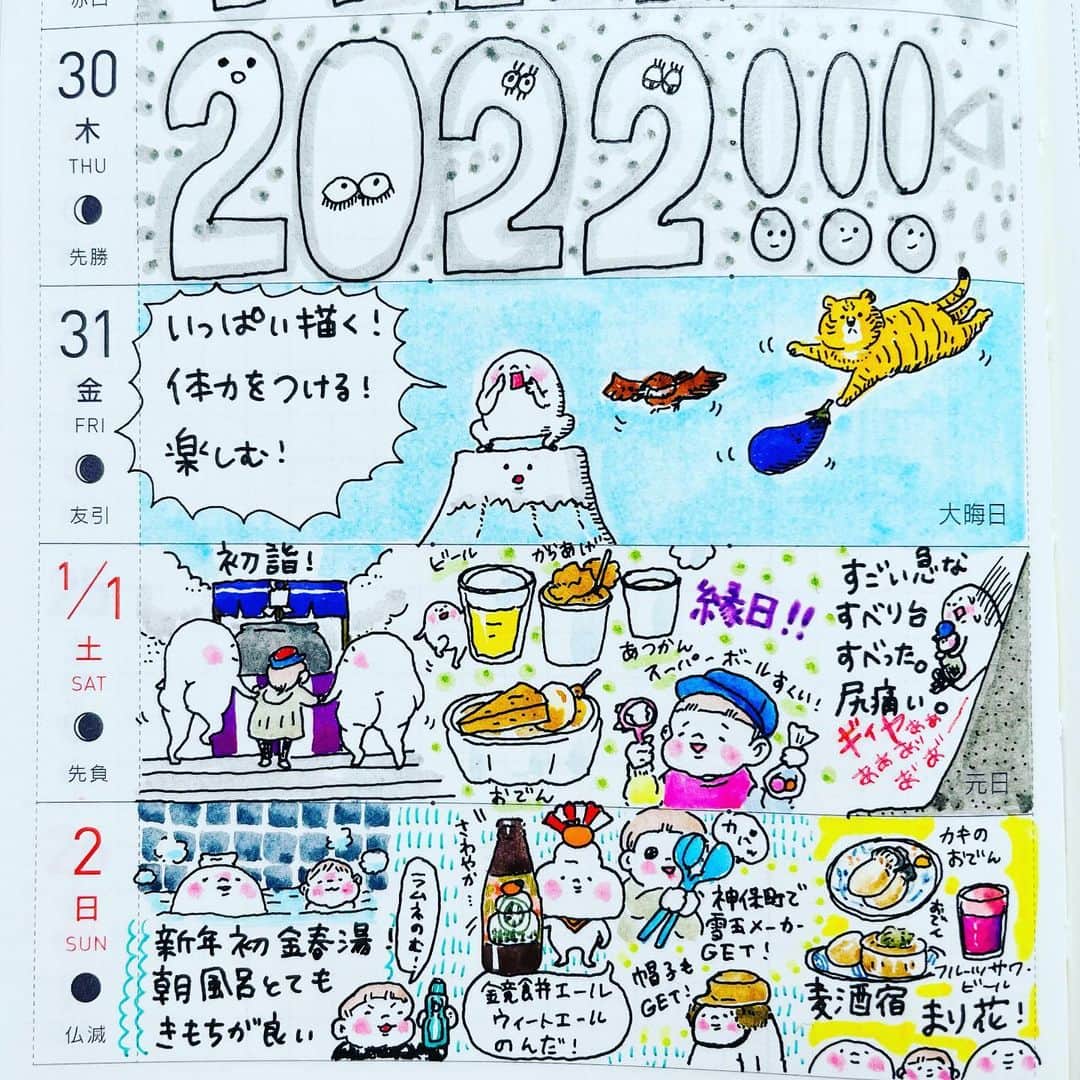 赤口
30
木
THU
先勝
2022!!!
31
金
FRI
友引
いっぱい描く!
体力をつける!
楽しむ!
大晦日
1/1
土
SAT
先負
初詣!
ビール
からあげ
あつかん
おでん
縁日!!
スーパーボールすくい!
すごい急な
すべり台
すべった。
尻痛い。
元日
2
日
SUN
仏滅
新年初金春湯!
朝風呂とても
きもちが良い
ラムネのむ!
さわやか…
ウィートエール
のんだ!
神保町で
雪玉メーカー
GET!
帽子も
GET!
カキの
おでん
おでん
フルーツサワー
ビール
麦酒宿
まり花!